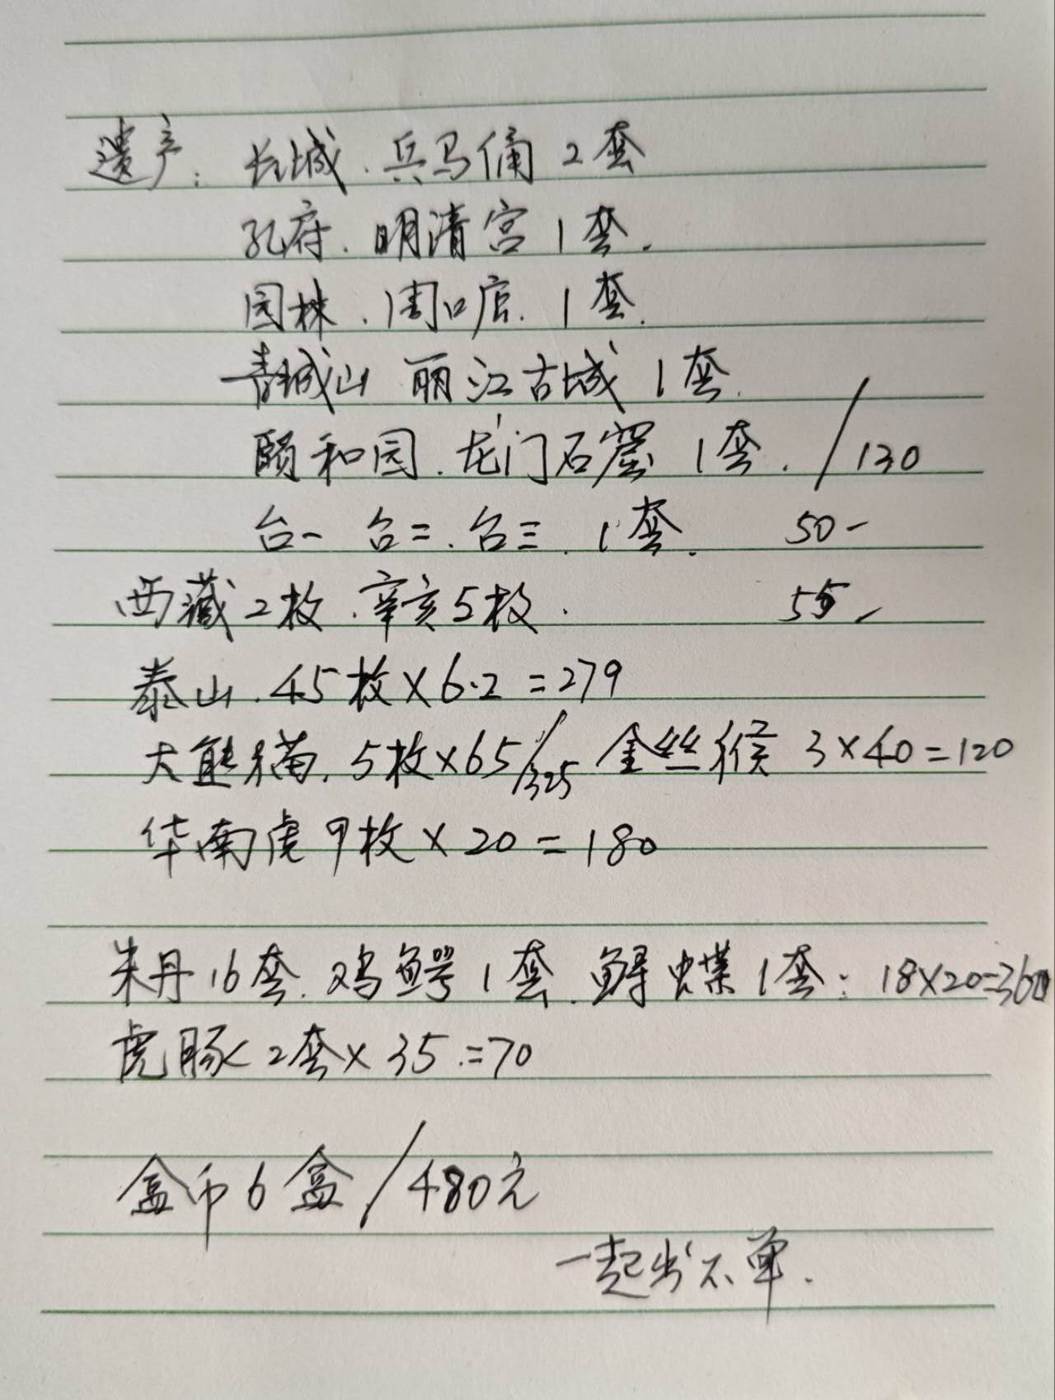 遗产: 长城.兵马俑 2套
孔府.明清宫 1套.
园林.周口店. 1套.
青城山 丽江古城 1套.
颐和园.龙门石窟 1套. /130
台一 台二.台三. 1套. 50-
西藏2枚.辛亥5枚. 55-
泰山.45枚×6.2=279
大熊猫.5枚×65/325 金丝猴 3×40=120
华南虎9枚×20=180
朱丹16套.鸡鳄1套.鲟蝶1套: 18×20=360
虎豚2套×35.=70
盒币6盒/480元
一起出不单.